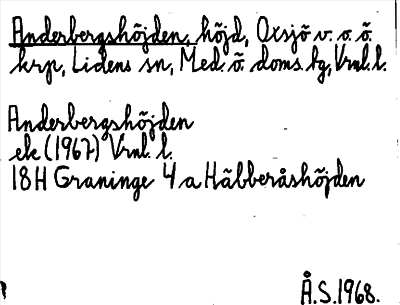 Anderbergshöjden, höjd, Oxsjö v. o. ö.
krp, Lidens sn, Med. ö. doms. bg, Vrnl. l.
Anderbergshöjden
ek (1967) Vrnl. l.
18H Graninge 4 a Häbberåshöjden
Å.S. 1968.